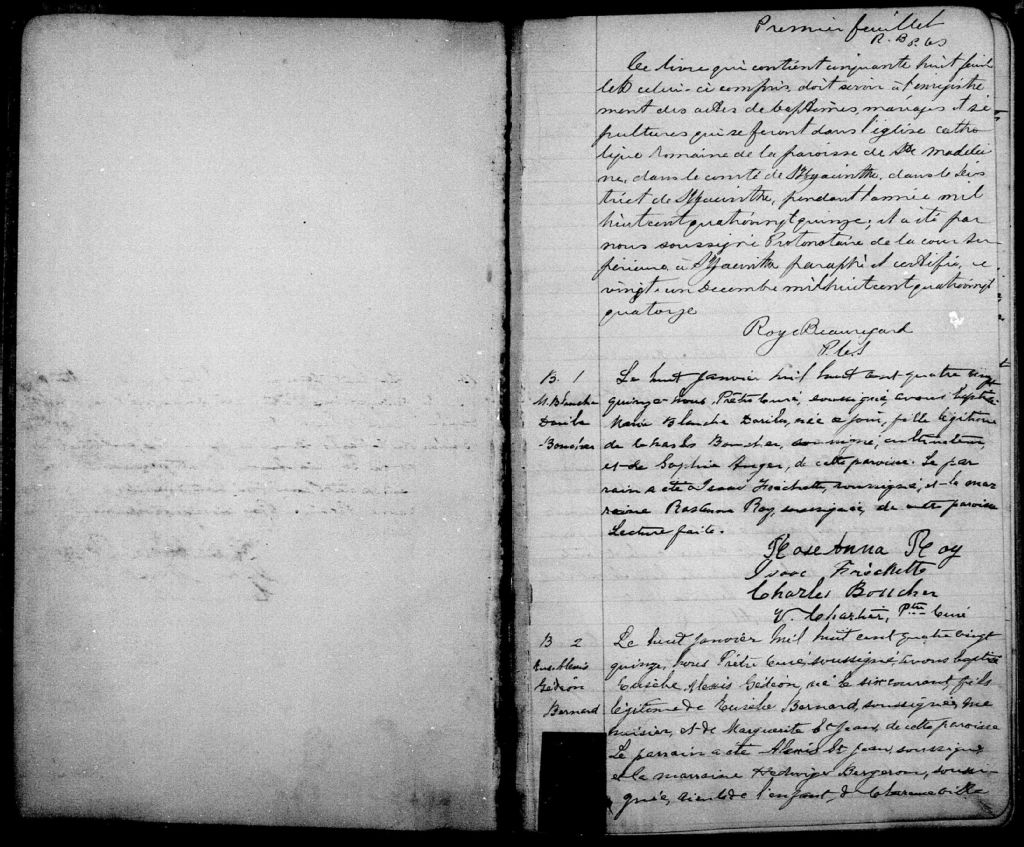 Premier feuillet
R. B P. C S
Ce livre qui contient cinquante huit feuil
lets celui-ci compris, doit servir à l'enregistre
ment des actes de baptêmes, mariages et sé
pultures qui se feront dans l'église catho
lique Romaine de la paroisse de Ste Madelei
ne, dans le comté de St Hyacinthe, dans le Dis
trict de St Hyacinthe, pendant l'année mil
huit cent quatrevingt quinze, et a été par
nous soussigné Protonotaire de la cour Su
périeure à St Hyacinthe paraphé et certifié, ce
vingt-un Decembre mil huit cent quatrevingt
quatorze
Roy & Beauregard
P. C. S
B. 1
M. Blanche
Darila
Boucher
Le huit Janvier mil huit cent quatre vingt
quinze nous Prêtre Curé, soussigné avons baptisé
Marie Blanche Darila, née ce jour, fille légitime
de Charles Boucher, soussigné, cultivateur,
et de Sophie Auger, de cette paroisse. Le par
rain a été Isaac Frechette, soussigné, et la mar
raine Roseanna Roy, soussignée, de cette paroisse
Lecture faite.
Rose Anna Roy
Isaac Fréchette
Charles Boucher
V. Chartier, Ptre Curé
B 2
Eus. Alexis
Gédéon
Bernard
Le huit Janvier mil huit cent quatre vingt
quinze, nous Prêtre Curé, soussigné avons baptisé
Eusèbe Alexis Gédéon, né le six courant, fils
légitime de Eusèbe Bernard, soussigné, me
nuisier, et de Marguerite St Jean, de cette paroisse
Le parrain a été Alexis St Jean, soussigné
et la marraine Hedwige Bergeron, soussi-
gnée, de l'enfant, de Clarenceville